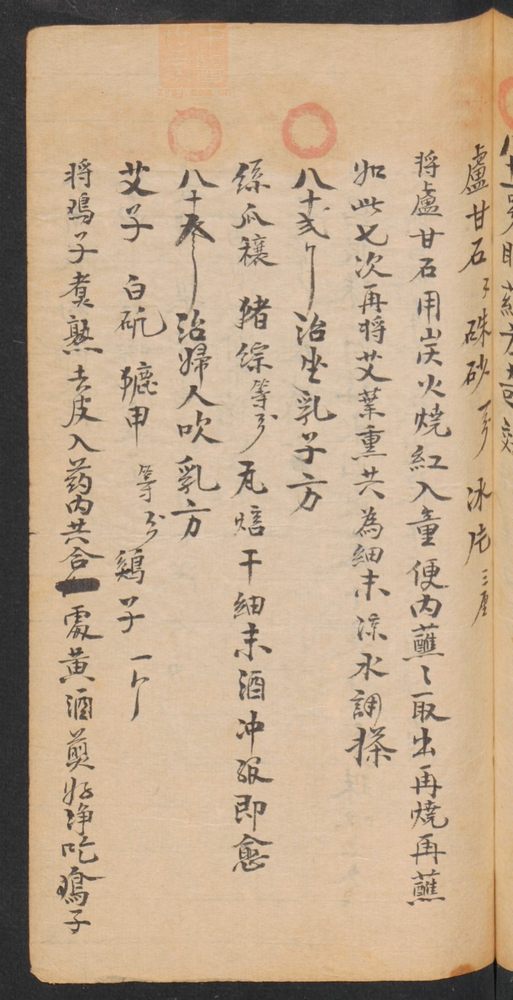 盧甘石 硃砂 冰片三厘
将盧甘石用炭火燒紅入童便内蘸〻取出再燒再蘸
如此七次再将艾葉熏共為細末凉水調搽
八十弍 治坐乳子方
絲瓜穰 猪綜等分 瓦焙干細末酒冲服即愈
八十叁 治婦人吹乳方
艾子 白矾 攏甲 等分 鷄子一个
将鳮子煮熟去皮入葯内共合處黄酒煎好净吃鳮子